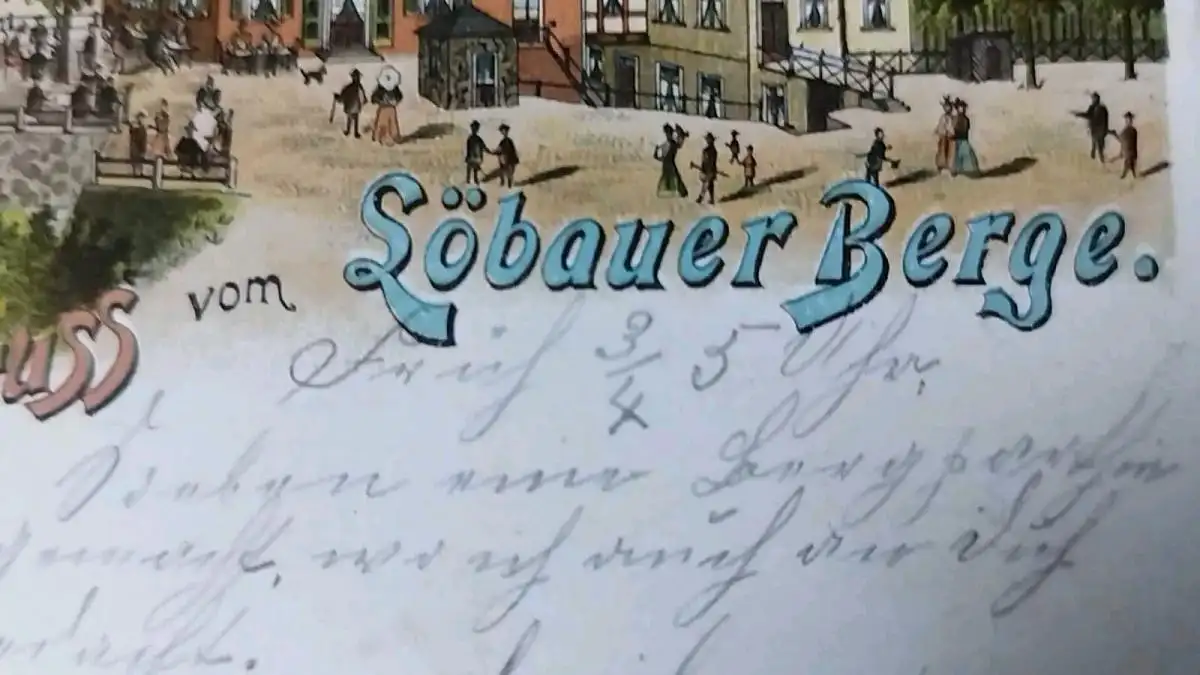 uss vom Löbauer Berge.
Früh 3/4 5 Uhr,
eine Bergparthie
gemacht, wo ich auch an Dich
gedacht.